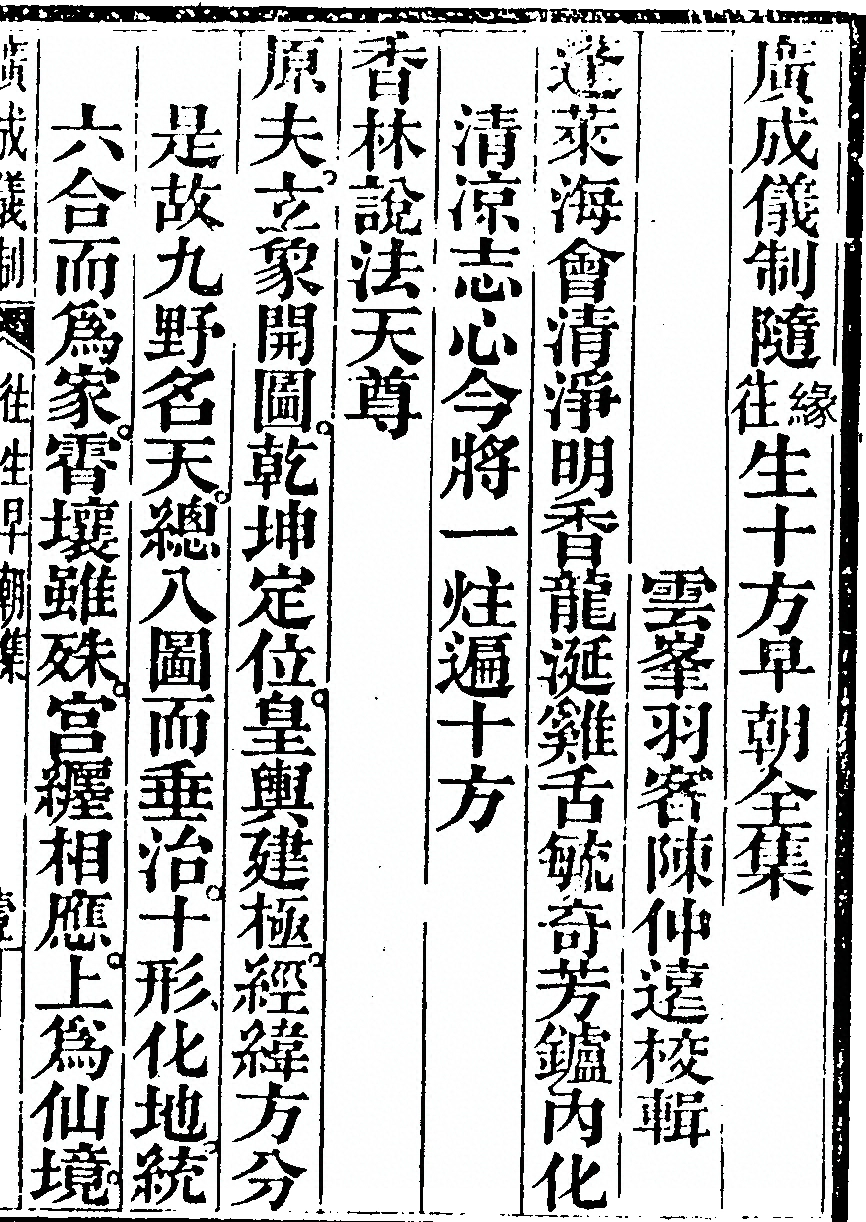 廣成儀制隨緣往生十方早朝全集
雲峯羽客陳仲遠校輯
蓬萊海會清淨明香龍涎雞舌毓奇芳鑪內化
清凉志心今將一炷遍十方
香林說法天尊
原夫立象開圖。乾坤定位。皇輿建極。經緯方分
是故九野名天。總八圖而垂治。十形化地。統
六合而爲家。霄壤雖殊。宫纏相應。上爲仙境。
廣成儀制 往生早朝集 壹